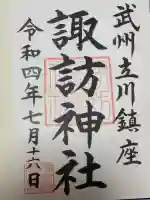 武州立川鎮座
諏訪神社
令和四年七月十六日